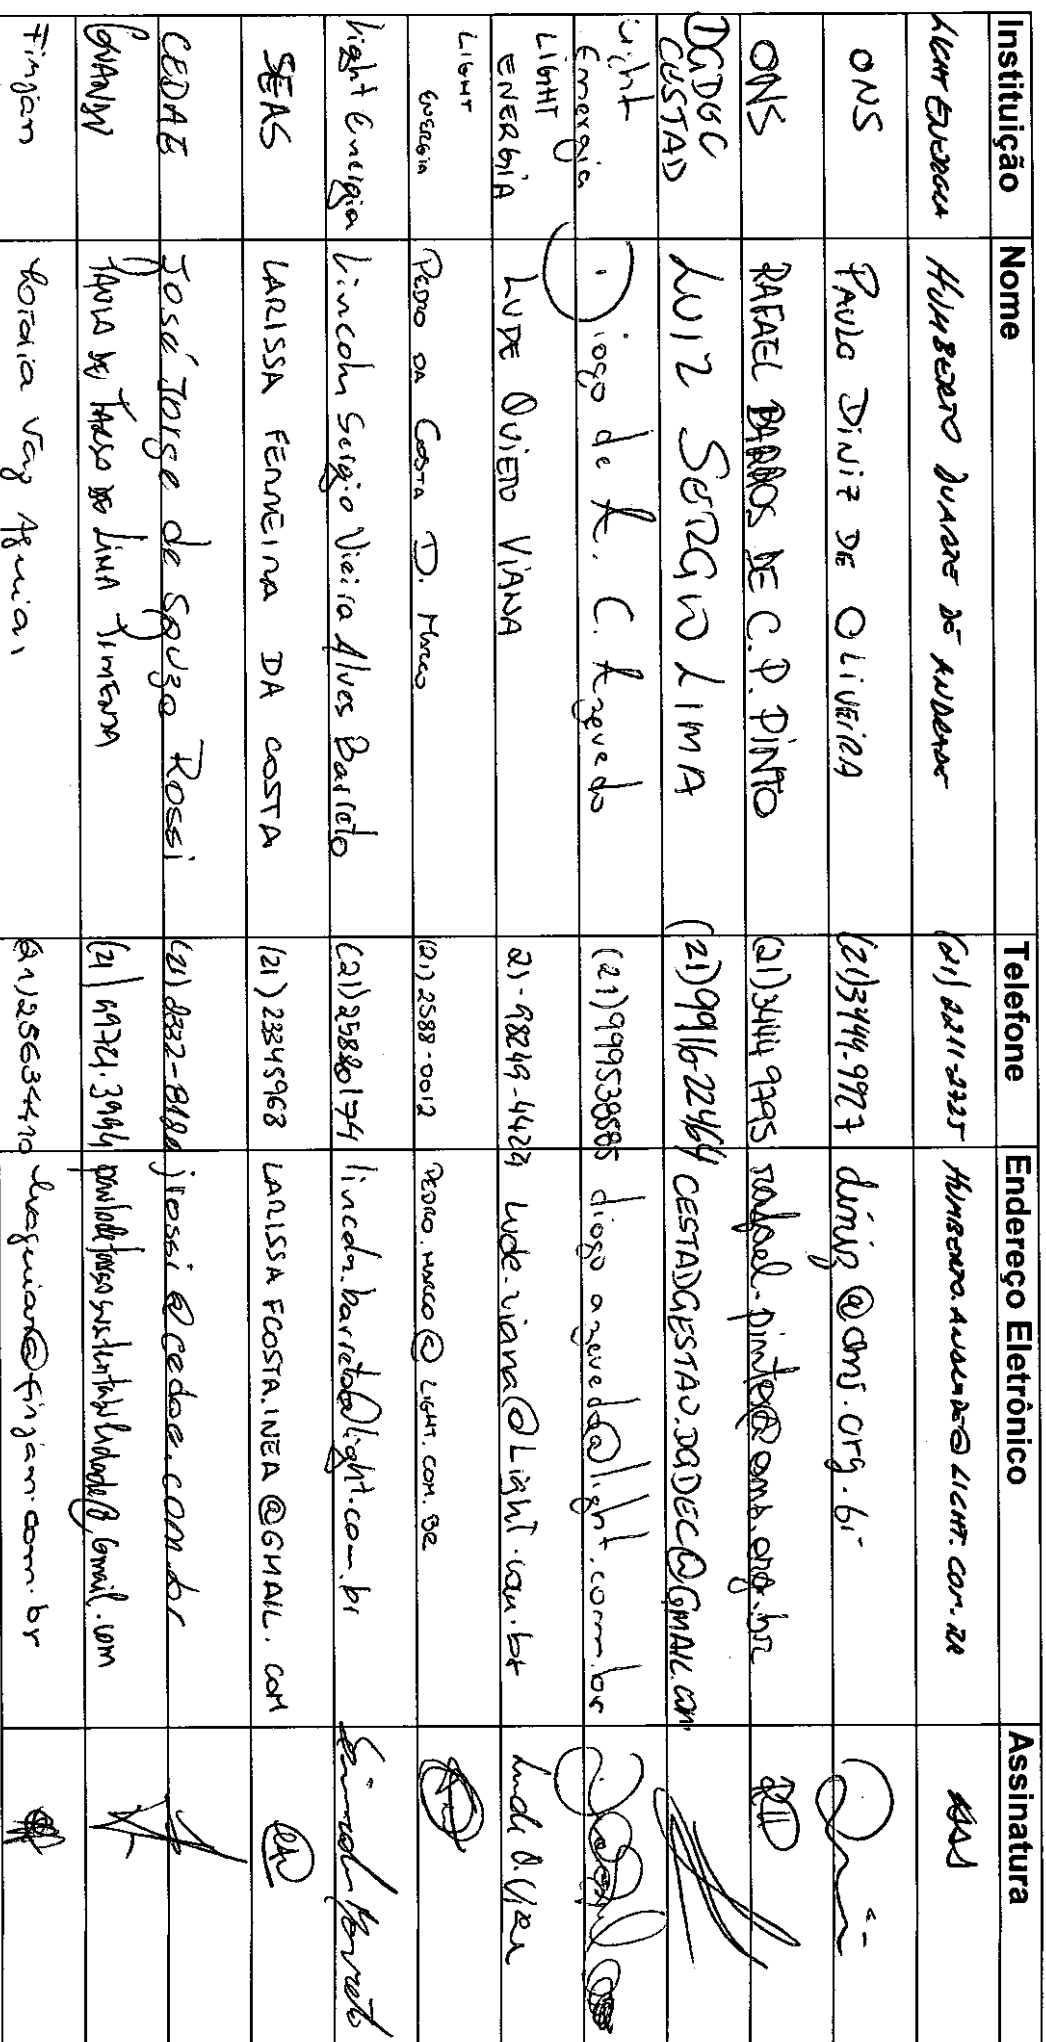 Instituição Nome Telefone Endereço Eletrônico Assinatura
LIGHT ENERGIA HUMBERTO DUARTE DE ANDRADE (21) 2211-2725 HUMBERTO.ANDRADE@LIGHT.COM.BR
ONS PAULO DINIZ DE OLIVEIRA (21)3444-9927 diniz@ons.org.br
ONS RAFAEL BARROS DE C. P. PINTO (21)3444 9795 rafael.pinto@ons.org.br
DGDEC
CUSTAD LUIZ SERGIO LIMA (21)99116-22464 CESTADGESTAO.DGDEC@GMAIL.com
Light
Energia Diogo de A. C. Azevedo (21)999538585 diogo azevedo@light.com.br
LIGHT
ENERGIA LUDE QUIETO VIANA 21-98249-4424 Lude.viana@Light.com.br Lude Q. Viana
LIGHT
ENERGIA PEDRO DA COSTA D. (21)2588-0012 @LIGHT.COM.BR
Light Energia Lincoln Sergio Vieira Alves Barreto (21)25880174 lincoln.barreto@light.com.br Lincoln Barreto
SEAS LARISSA FERREIRA DA COSTA (21)23345968 LARISSA FCOSTA.INEA@GMAIL.COM
CEDAE José Jorge de Souza Rossi (21)2332-8180 jrossi@cedae.com.br
DE TARSO DE LIMA PIMENTA (21) 99721.3994 paulodetarsosustentabilidade@Gmail.com
Firjan Vaz Aguiar (21)25634410 @firjan.com.br